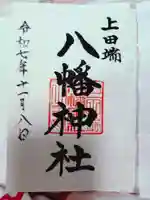 上田端
八幡神社
令和七年十一月八日